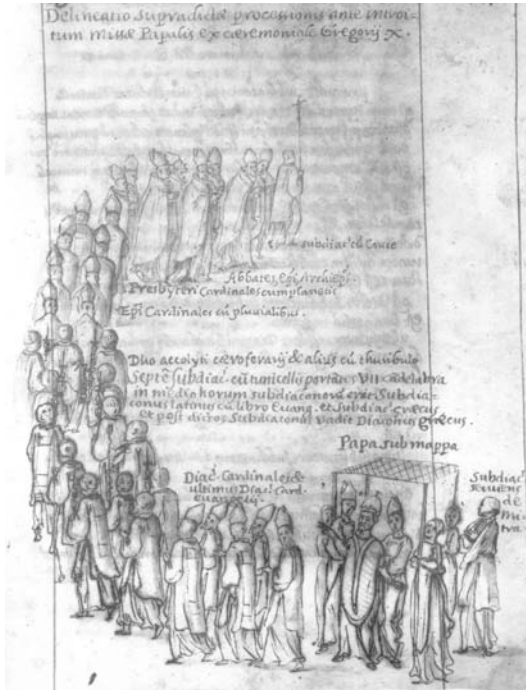 Delineatio supradictæ processionis ante introi-
tum missæ Papalis ex cæremoniale Gregorij X.
subdiac' cū Cruce
Abbates, Epi, Archiepi.
Presbyteri Cardinales cum planetis
Epi Cardinales cū pluvialibus.
Duo accolyti ceroferarij & alius cū thuribulo
Septē subdiac. cū tunicellis portātes VII cādelabra
in medio horum subdiaconorū erit Subdia-
conus latinus cū libro Euang. et Subdiac' græcus
et post dictos Subdiaconos vadit Diaconus græcus.
Papa sub mappa
Diac. Cardinales
ultimus Diac. Card.
Subdiac'
de
Mi
tra